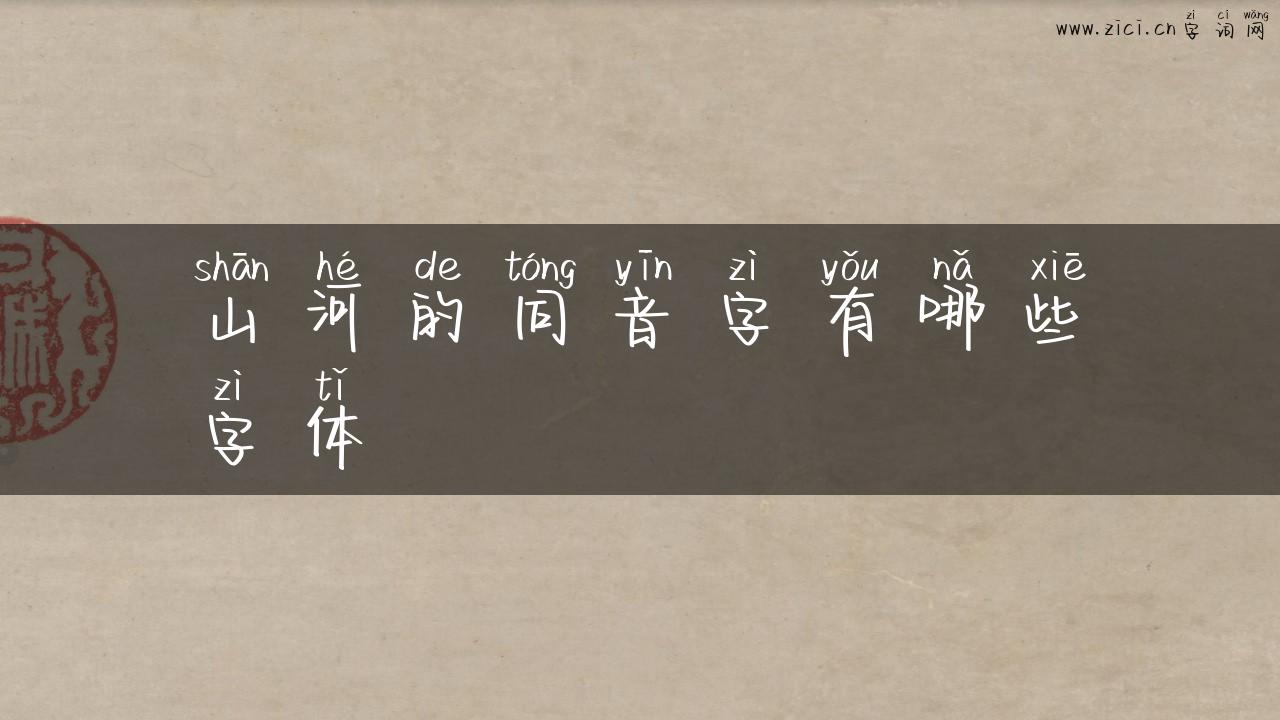 www.zici.cn 字词网
zì cí wǎng
shān hé de tóng yīn zì yǒu nǎ xiē
山河的同音字有哪些
zì tǐ
字体